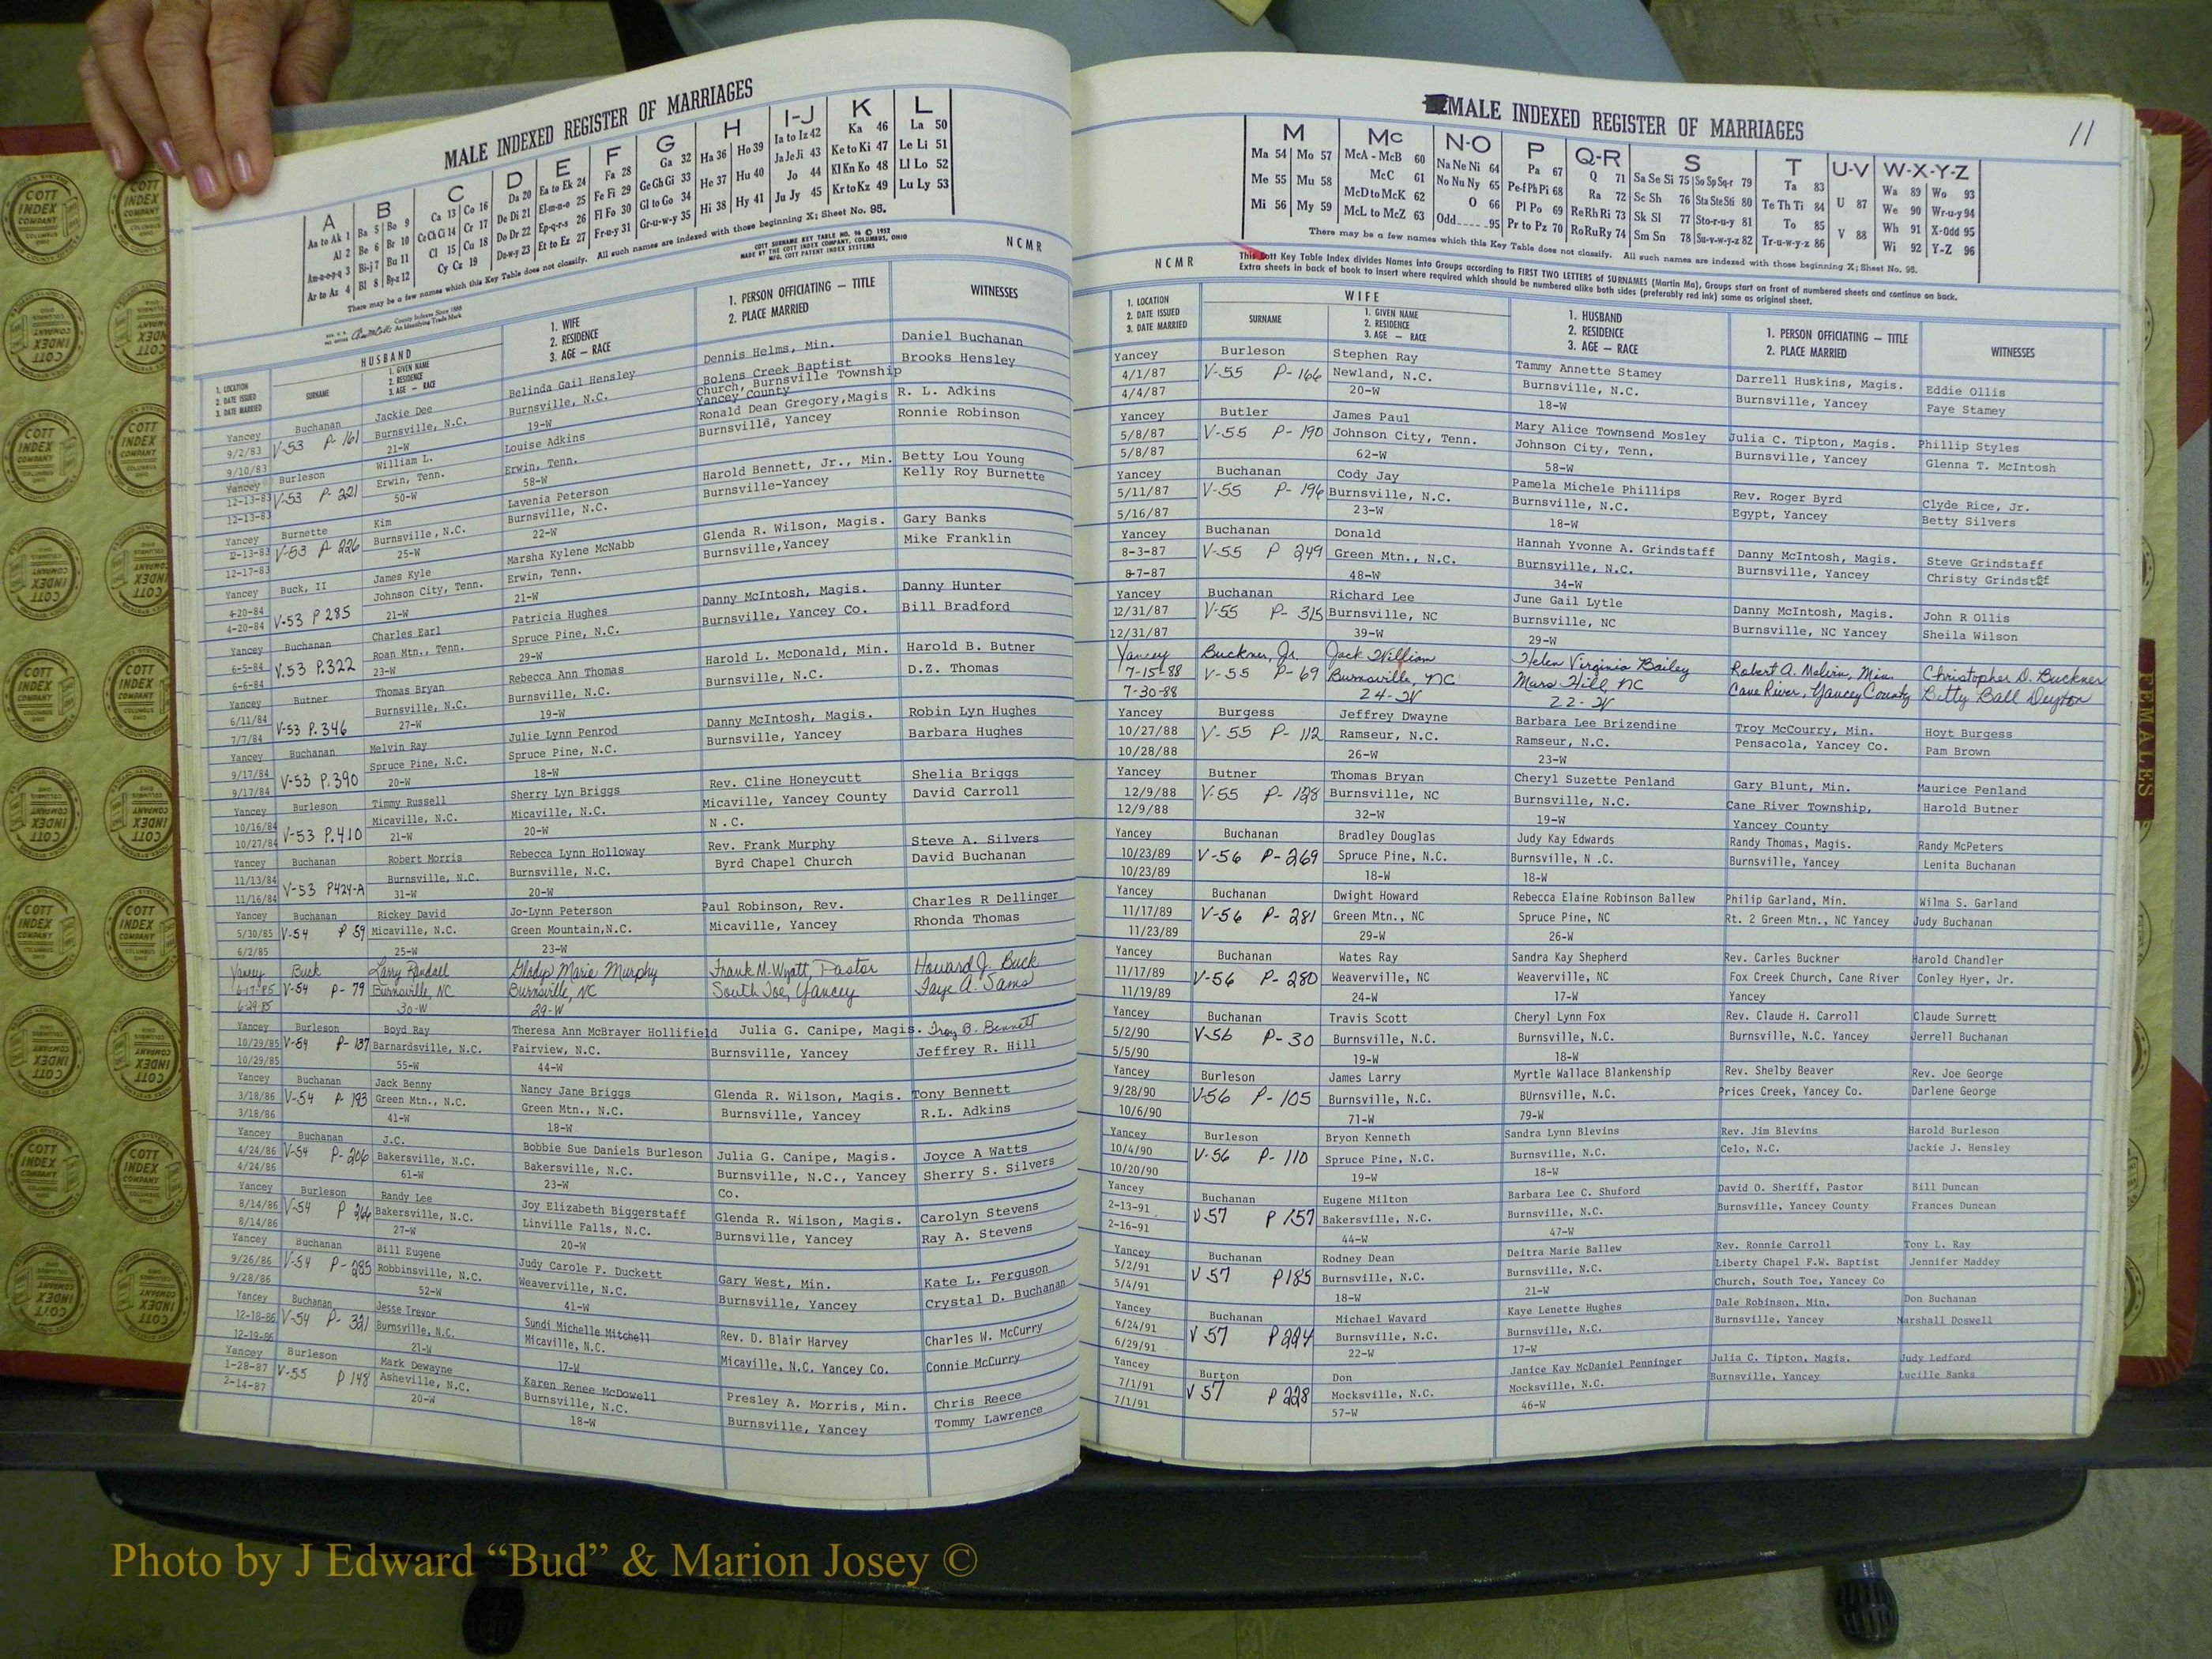 MALE INDEXED REGISTER OF MARRIAGES
A B C D E F G H I-J K L
Aa to Ak 1 Ba 5 Bo 9 Ca 13 Co 16 Da 20 Ea to Ek 24 Fa 28 Ga 32 Ha 36 Ho 39 Ia to Iz 42 Ka 46 La 50
Al 2 Be 6 Br 10 Ce Ch Ci 14 Cr 17 De Di 21 El-m-n-o 25 Fe Fi 29 Ge Gh Gi 33 He 37 Hu 40 Ja Je Ji 43 Ke to Ki 47 Le Li 51
Am-n-o-p-q 3 Bi-j 7 Bu 11 Cl 15 Cu 18 Do Dr 22 Ep-q-r-s 26 Fl Fo 30 Gl to Go 34 Hi 38 Hy 41 Jo 44 Kl Kn Ko 48 Ll Lo 52
Ar to Az 4 Bl 8 By-z 12 Cy Cz 19 Du-w-y 23 Et to Ez 27 Fr-u-y 31 Gr-u-w-y 35 Ju Jy 45 Kr to Kz 49 Lu Ly 53
There may be a few names which this Key Table does not classify. All such names are indexed with those beginning X; Sheet No. 95.
COTT SURNAME KEY TABLE NO. 96 © 1952
MADE BY THE COTT INDEX COMPANY, COLUMBUS, OHIO
MFG. COTT PATENT INDEX SYSTEMS
NCMR
County Indexes Since 1888
An Identifying Trade Mark
HUSBAND
1. LOCATION 2. DATE ISSUED 3. DATE MARRIED
SURNAME
1. GIVEN NAME 2. RESIDENCE 3. AGE — RACE
1. WIFE 2. RESIDENCE 3. AGE — RACE
1. PERSON OFFICIATING — TITLE 2. PLACE MARRIED
WITNESSES
Yancey Buchanan Jackie Dee Belinda Gail Hensley Dennis Helms, Min. Daniel Buchanan
9/2/83 V-53 P-161 Burnsville, N.C. Burnsville, N.C. Bolens Creek Baptist Brooks Hensley
9/10/83 21-W 19-W Church, Burnsville Township
Yancey County
Yancey Burleson William L. Louise Adkins Ronald Dean Gregory, Magis R. L. Adkins
12-13-83 V-53 P-221 Erwin, Tenn. Erwin, Tenn. Burnsville, Yancey Ronnie Robinson
12-13-83 50-W 58-W
Yancey Burnette Kim Lavenia Peterson Harold Bennett, Jr., Min. Betty Lou Young
12-13-83 V-53 P-226 Burnsville, N.C. Burnsville, N.C. Burnsville-Yancey Kelly Roy Burnette
12-17-83 25-W 22-W
Yancey Buck, II James Kyle Marsha Kylene McNabb Glenda R. Wilson, Magis. Gary Banks
4-20-84 V-53 P 285 Johnson City, Tenn. Erwin, Tenn. Burnsville,Yancey Mike Franklin
4-20-84 21-W 21-W
Yancey Buchanan Charles Earl Patricia Hughes Danny McIntosh, Magis. Danny Hunter
6-5-84 V.53 P.322 Roan Mtn., Tenn. Spruce Pine, N.C. Burnsville, Yancey Co. Bill Bradford
6-6-84 23-W 29-W
Butner Thomas Bryan Rebecca Ann Thomas Harold L. McDonald, Min. Harold B. Butner
6/11/84 V-53 P.346 Burnsville, N.C. Burnsville, N.C. Burnsville, N.C. D.Z. Thomas
7/7/84 27-W 19-W
Yancey Buchanan Melvin Ray Julie Lynn Penrod Danny McIntosh, Magis. Robin Lyn Hughes
9/17/84 V-53 P.390 Spruce Pine, N.C. Spruce Pine, N.C. Burnsville, Yancey Barbara Hughes
9/17/84 20-W 18-W
Yancey Burleson Timmy Russell Sherry Lyn Briggs Rev. Cline Honeycutt Shelia Briggs
10/16/84 V-53 P.410 Micaville, N.C. Micaville, N.C. Micaville, Yancey County David Carroll
10/27/84 21-W 20-W N.C.
Yancey Buchanan Robert Morris Rebecca Lynn Holloway Rev. Frank Murphy Steve A. Silvers
11/13/84 V-53 P424-A Burnsville, N.C. Burnsville, N.C. Byrd Chapel Church David Buchanan
11/16/84 31-W 20-W
Yancey Buchanan Rickey David Jo-Lynn Peterson Paul Robinson, Rev. Charles R Dellinger
5/30/85 V-54 P 59 Micaville, N.C. Green Mountain,N.C. Micaville, Yancey Rhonda Thomas
6/2/85 25-W 23-W
Yancey Buck Larry Randall Gladys Marie Murphy Frank M. Wyatt, Pastor Howard J. Buck
6-17-85 V-54 P-79 Burnsville, NC Burnsville, NC South Toe, Yancey Faye A. Sams
6-29-85 30-W 29-W
Yancey Burleson Boyd Ray Theresa Ann McBrayer Hollifield Julia G. Canipe, Magis. Troy B. Bennett
10/29/85 V-54 P-137 Barnardsville, N.C. Fairview, N.C. Burnsville, Yancey Jeffrey R. Hill
10/29/85 55-W 44-W
Yancey Buchanan Jack Benny Nancy Jane Briggs Glenda R. Wilson, Magis. Tony Bennett
3/18/86 V-54 P-193 Green Mtn., N.C. Green Mtn., N.C. Burnsville, Yancey R.L. Adkins
3/18/86 41-W 18-W
Yancey Buchanan J.C. Bobbie Sue Daniels Burleson Julia G. Canipe, Magis. Joyce A Watts
4/24/86 V-54 P-206 Bakersville, N.C. Bakersville, N.C. Burnsville, N.C., Yancey Sherry S. Silvers
4/24/86 61-W 23-W Co.
Yancey Burleson Randy Lee Joy Elizabeth Biggerstaff Glenda R. Wilson, Magis. Carolyn Stevens
8/14/86 V-54 P 266 Bakersville, N.C. Linville Falls, N.C. Burnsville, Yancey Ray A. Stevens
8/14/86 27-W 20-W
Yancey Buchanan Bill Eugene Judy Carole F. Duckett Gary West, Min. Kate L. Ferguson
9/26/86 V-54 P-285 Robbinsville, N.C. Weaverville, N.C. Burnsville, Yancey Crystal D. Buchanan
9/28/86 52-W 41-W
Yancey Buchanan Jesse Trevor Sundi Michelle Mitchell Rev. D. Blair Harvey Charles W. McCurry
12-18-86 V-54 P-321 Burnsville, N.C. Micaville, N.C. Micaville, N.C. Yancey Co. Connie McCurry
12-19-86 21-W 17-W
Yancey Burleson Mark Dewayne Karen Renee McDowell Presley A. Morris, Min. Chris Reece
1-28-87 V-55 P 148 Asheville, N.C. Burnsville, N.C. Burnsville, Yancey Tommy Lawrence
2-14-87 20-W 18-W
MALE INDEXED REGISTER OF MARRIAGES
11
M Mc N-O P Q-R S T U-V W-X-Y-Z
Ma 54 Mo 57 McA - McB 60 Na Ne Ni 64 Pa 67 Q 71 Sa Se Si 75 So Sp Sq-r 79 Ta 83 U 87 Wa 89 Wo 93
Me 55 Mu 58 McC 61 No Nu Ny 65 Pe-f Ph Pi 68 Ra 72 Sc Sh 76 Sta Ste Sti 80 Te Th Ti 84 V 88 We 90 Wr-u-y 94
Mi 56 My 59 McD to McK 62 O 66 Pl Po 69 Re Rh Ri 73 Sk Sl 77 Sto-r-u-y 81 To 85 Wh 91 X-Odd 95
McL to McZ 63 Odd 95 Pr to Pz 70 Ro Ru Ry 74 Sm Sn 78 Su-v-w-y-z 82 Tr-u-w-y-z 86 Wi 92 Y-Z 96
There may be a few names which this Key Table does not classify. All such names are indexed with those beginning X; Sheet No. 95.
NCMR
This Cott Key Table Index divides Names into Groups according to FIRST TWO LETTERS of SURNAMES (Martin Ma), Groups start on front of numbered sheets and continue on back.
Extra sheets in back of book to insert where required which should be numbered alike both sides (preferably red ink) same as original sheet.
WIFE
1. LOCATION 2. DATE ISSUED 3. DATE MARRIED
SURNAME
1. GIVEN NAME 2. RESIDENCE 3. AGE — RACE
1. HUSBAND 2. RESIDENCE 3. AGE — RACE
1. PERSON OFFICIATING — TITLE 2. PLACE MARRIED
WITNESSES
Yancey Burleson Stephen Ray Tammy Annette Stamey Darrell Huskins, Magis. Eddie Ollis
4/1/87 V-55 P-166 Newland, N.C. Burnsville, N.C. Burnsville, Yancey Faye Stamey
4/4/87 20-W 18-W
Yancey Butler James Paul Mary Alice Townsend Mosley Julia C. Tipton, Magis. Phillip Styles
5/8/87 V-55 P-190 Johnson City, Tenn. Johnson City, Tenn. Burnsville, Yancey Glenna T. McIntosh
5/8/87 62-W 58-W
Yancey Buchanan Cody Jay Pamela Michele Phillips Rev. Roger Byrd Clyde Rice, Jr.
5/11/87 V-55 P-196 Burnsville, N.C. Burnsville, N.C. Egypt, Yancey Betty Silvers
5/16/87 23-W 18-W
Yancey Buchanan Donald Hannah Yvonne A. Grindstaff Danny McIntosh, Magis. Steve Grindstaff
8-3-87 V-55 P 249 Green Mtn., N.C. Burnsville, N.C. Burnsville, Yancey Christy Grindstaff
8-7-87 48-W 34-W
Yancey Buchanan Richard Lee June Gail Lytle Danny McIntosh, Magis. John R Ollis
12/31/87 V-55 P-315 Burnsville, NC Burnsville, NC Burnsville, NC Yancey Sheila Wilson
12/31/87 39-W 29-W
Yancey Buckner, Jr. Jack William Helen Virginia Bailey Robert A. Melvin, Min. Christopher D. Buckner
7-15-88 V-55 P-69 Burnsville, NC Mars Hill, NC Cane River, Yancey County Betty Ball Deyton
7-30-88 24-W 22-W
Yancey Burgess Jeffrey Dwayne Barbara Lee Brizendine Troy McCourry, Min. Hoyt Burgess
10/27/88 V-55 P-112 Ramseur, N.C. Ramseur, N.C. Pensacola, Yancey Co. Pam Brown
10/28/88 26-W 23-W
Yancey Butner Thomas Bryan Cheryl Suzette Penland Gary Blunt, Min. Maurice Penland
12/9/88 V-55 P-128 Burnsville, NC Burnsville, N.C. Cane River Township, Harold Butner
12/9/88 32-W 19-W Yancey County
Yancey Buchanan Bradley Douglas Judy Kay Edwards Randy Thomas, Magis. Randy McPeters
10/23/89 V-56 P-269 Spruce Pine, N.C. Burnsville, N .C. Burnsville, Yancey Lenita Buchanan
10/23/89 18-W 18-W
Yancey Buchanan Dwight Howard Rebecca Elaine Robinson Ballew Philip Garland, Min. Wilma S. Garland
11/17/89 V-56 P-281 Green Mtn., NC Spruce Pine, NC Rt. 2 Green Mtn., NC Yancey Judy Buchanan
11/23/89 29-W 26-W
Yancey Buchanan Wates Ray Sandra Kay Shepherd Rev. Carles Buckner Harold Chandler
11/17/89 V-56 P-280 Weaverville, NC Weaverville, NC Fox Creek Church, Cane River Conley Hyer, Jr.
11/19/89 24-W 17-W Yancey
Yancey Buchanan Travis Scott Cheryl Lynn Fox Rev. Claude H. Carroll Claude Surrett
5/2/90 V-56 P-30 Burnsville, N.C. Burnsville, N.C. Burnsville, N.C. Yancey Jerrell Buchanan
5/5/90 19-W 18-W
Yancey Burleson James Larry Myrtle Wallace Blankenship Rev. Shelby Beaver Rev. Joe George
9/28/90 V-56 P-105 Burnsville, N.C. BUrnsville, N.C. Prices Creek, Yancey Co. Darlene George
10/6/90 71-W 79-W
Yancey Burleson Bryon Kenneth Sandra Lynn Blevins Rev. Jim Blevins Harold Burleson
10/4/90 V-56 P-110 Spruce Pine, N.C. Burnsville, N.C. Celo, N.C. Jackie J. Hensley
10/20/90 19-W 18-W
Yancey Buchanan Eugene Milton Barbara Lee C. Shuford David O. Sheriff, Pastor Bill Duncan
2-13-91 V 57 P 157 Bakersville, N.C. Burnsville, N.C. Burnsville, Yancey County Frances Duncan
2-16-91 44-W 47-W
Yancey Buchanan Rodney Dean Deitra Marie Ballew Rev. Ronnie Carroll Tony L. Ray
5/2/91 V 57 P185 Burnsville, N.C. Burnsville, N.C. Liberty Chapel F.W. Baptist Jennifer Maddey
5/4/91 18-W 21-W Church, South Toe, Yancey Co
Yancey Buchanan Michael Wavard Kaye Lenette Hughes Dale Robinson, Min. Don Buchanan
6/24/91 V 57 P224 Burnsville, N.C. Burnsville, N.C. Burnsville, Yancey Marshall Doswell
6/29/91 22-W 17-W
Yancey Burton Don Janice Kay McDaniel Penninger Julia C. Tipton, Magis. Judy Ledford
7/1/91 V 57 P 228 Mocksville, N.C. Mocksville, N.C. Burnsville, Yancey Lucille Banks
7/1/91 57-W 46-W
FEMALES
COTT INDEX COMPANY COLUMBUS OHIO
Photo by J Edward “Bud” & Marion Josey ©